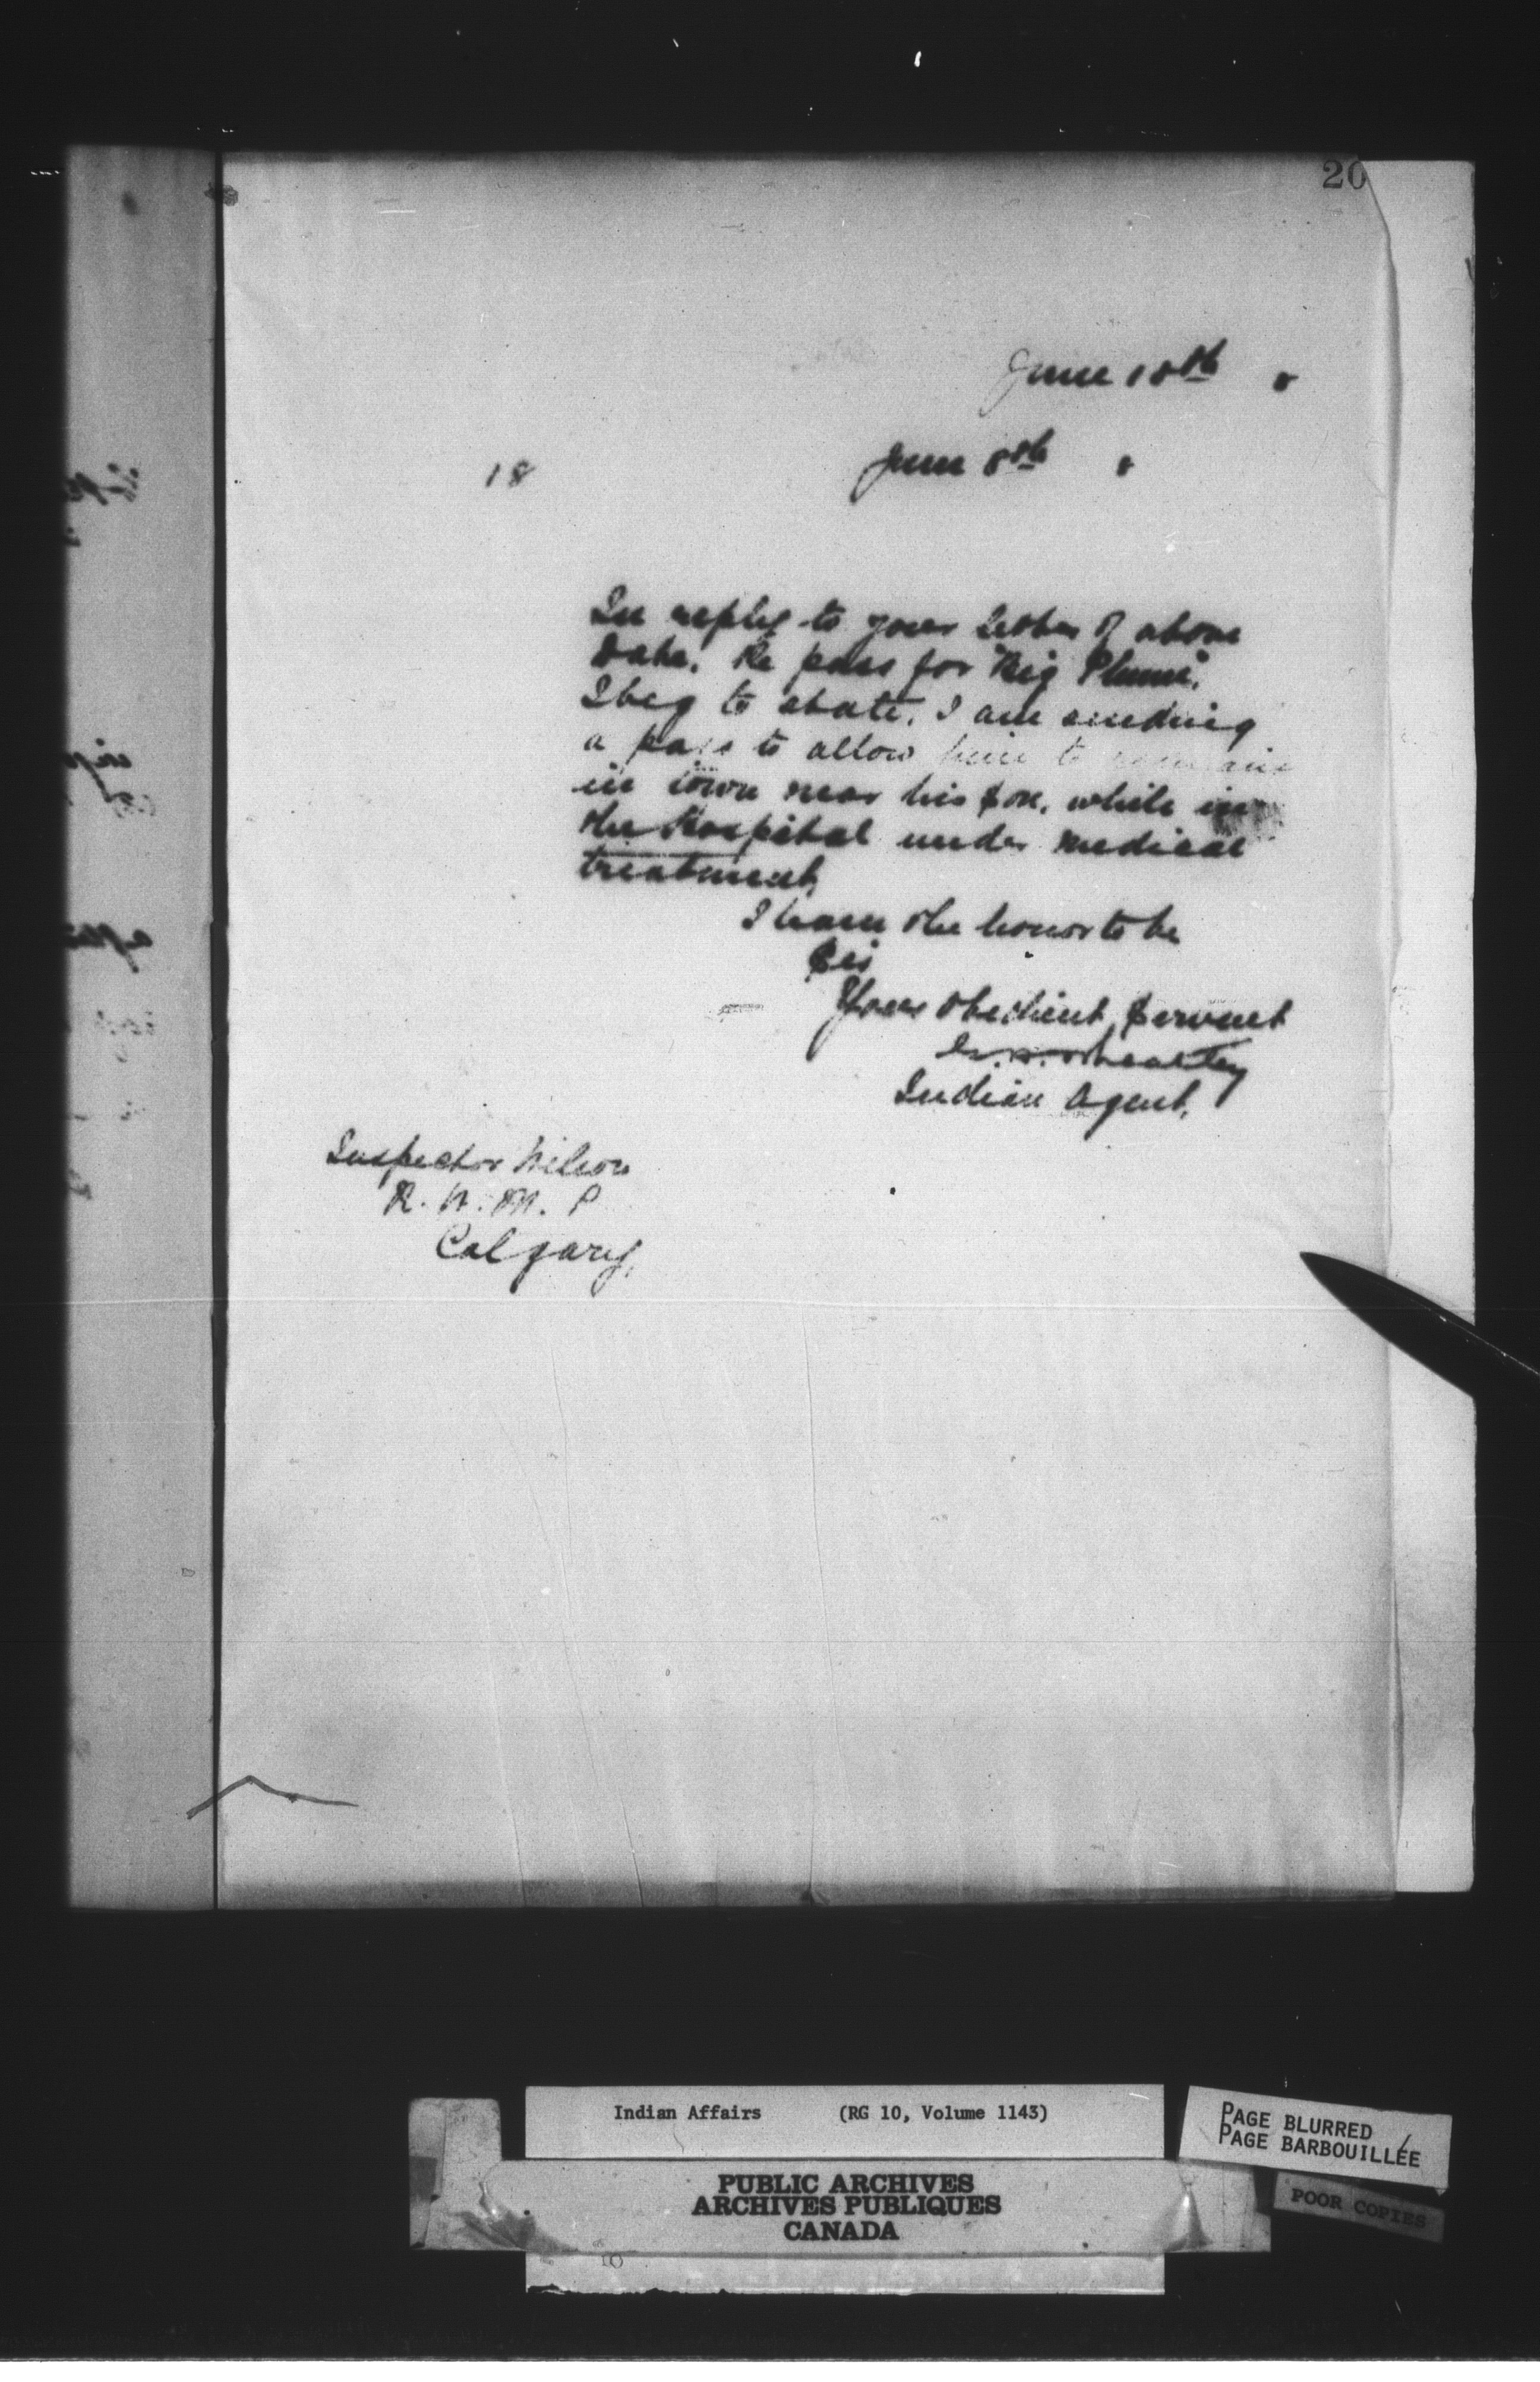 20
June 10th 8
18 June 8th 8
In reply to your letter of above
date. Re pass for "Big Plume".
I beg to state. I am sending
a pass to allow him to remain
in town near his son. while in
the Hospital under medical
treatment,
I have the honor to be
Sir
Your obedient Servant
Indian Agent,
Inspector Wilson
R. N. W. M. P
Calgary,
Indian Affairs (RG 10, Volume 1143)
PUBLIC ARCHIVES
ARCHIVES PUBLIQUES
CANADA
PAGE BLURRED
PAGE BARBOUILLÉE
POOR COPIES